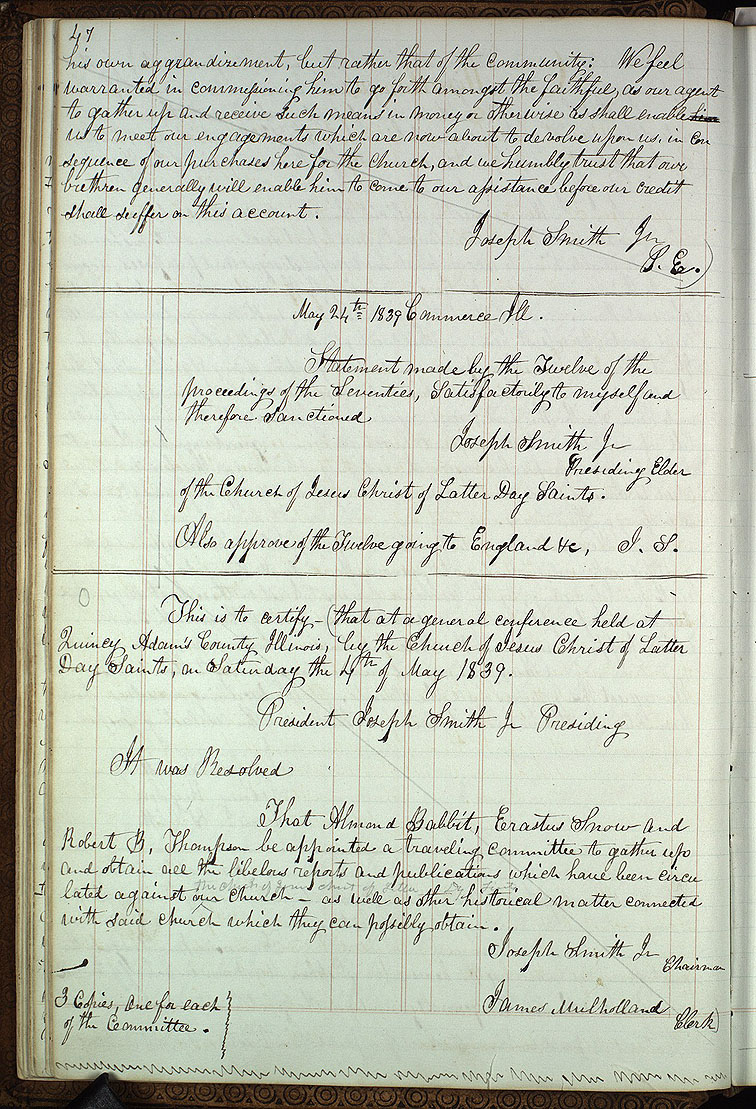 47
his own aggrandizement, but rather that of the community: We feel
warranted in commissioning him to go forth amongst the faithful, as our agent
to gather up and receive such means in money or otherwise as shall enable him
us to meet our engagements which are now about to devolve upon us, in con
sequence of our purchases here for the church, and we humbly trust that our
brethren generally will enable him to come to our assistance before our credit
shall suffer on this account.
Joseph Smith Jr
P. E.)
May 24th 1839 Commerce Ill.
Statement made by the Twelve of the
proceedings of the Seventies, Satisfactorily to myself and
therefore Sanctioned
Joseph Smith Jr
Presiding Elder
of the Church of Jesus Christ of Latter Day Saints.
Also approve of the Twelve going to England &c, J. S.
This is to certify– (that at a general conference held at
Quincy Adam's County Illinois, by the Church of Jesus Christ of Latter
Day Saints, on Saturday the 4th of May 1839.
President Joseph Smith Jr Presiding
It was Resolved
That Almond Babbit, Erastus Snow and
Robert B, Thompson be appointed a traveling committee to gather up
and obtain all the libelous reports and publications which have been circu
the church of Jesus christ of Latter Day Saints
lated against our church – as well as other historical matter connected
with said church which they can possibly obtain.
Joseph Smith Jr
Chairman
James Mulholland
Clerk)
3 Copies, one for each
of the Committee.